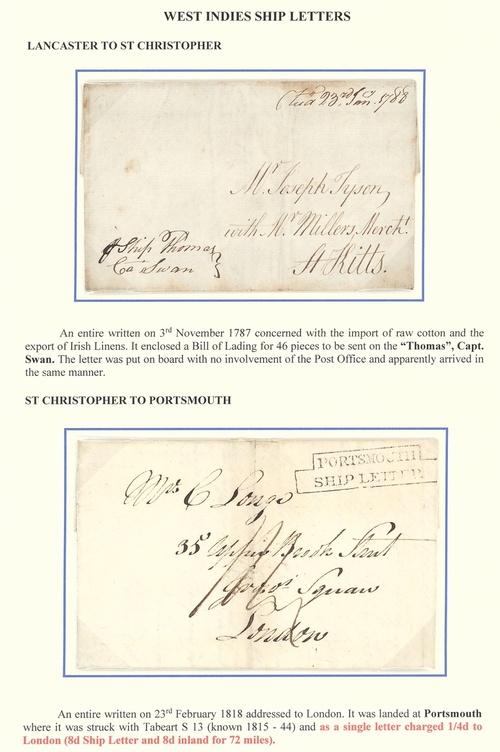 WEST INDIES SHIP LETTERS
LANCASTER TO ST CHRISTOPHER
23rd Jan. 1788
Mr. Joseph Tyson
with Mr. Millers, Mercht.
St Kitts.
Ship Thomas
Ca Swan
An entire written on 3rd November 1787 concerned with the import of raw cotton and the
export of Irish Linens. It enclosed a Bill of Lading for 46 pieces to be sent on the "Thomas", Capt.
Swan. The letter was put on board with no involvement of the Post Office and apparently arrived in
the same manner.
ST CHRISTOPHER TO PORTSMOUTH
PORTSMOUTH
SHIP LETTER
Mrs C Long
35 Upper Brook Street
Grosvr Square
London
An entire written on 23rd February 1818 addressed to London. It was landed at Portsmouth
where it was struck with Tabeart S 13 (known 1815 - 44) and as a single letter charged 1/4d to
London (8d Ship Letter and 8d inland for 72 miles).